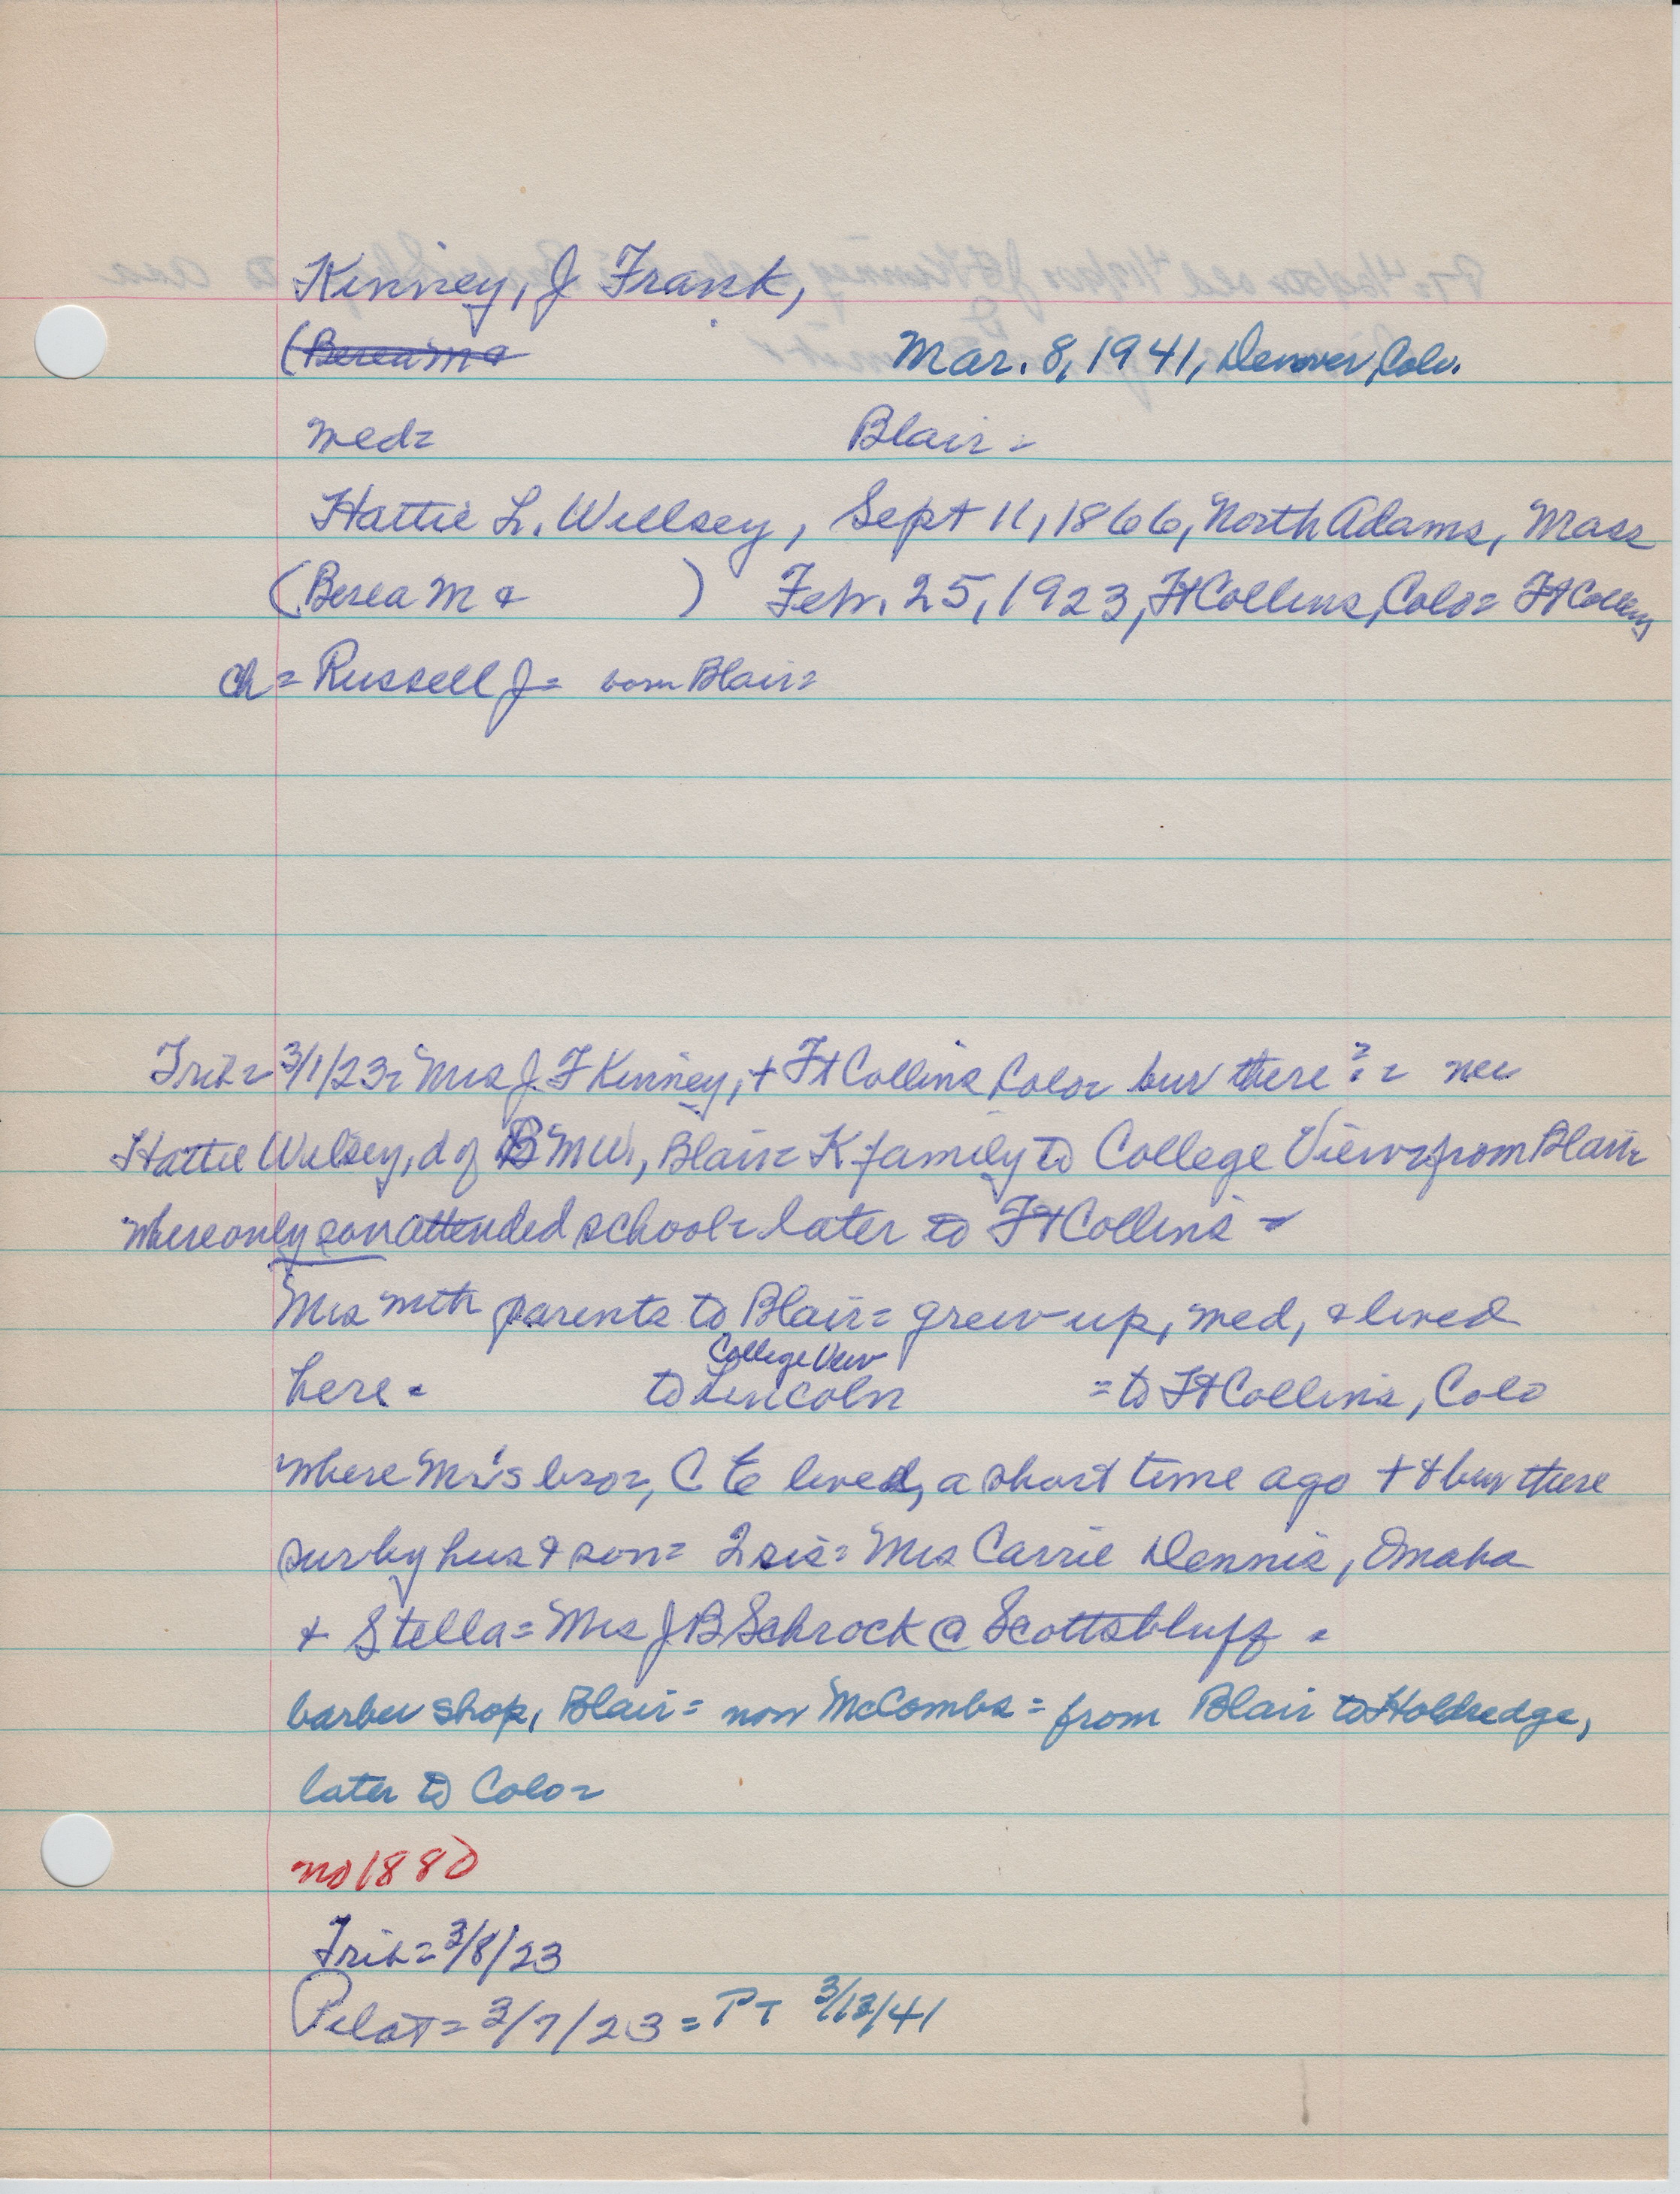 Kinney, J Frank,
(Berea M &
Mar. 8, 1941, Denver, Colo.
med= Blair =
Hattie L. Willsey, Sept 11, 1866, North Adams, Mass
(Berea M & ) Feb. 25, 1923, Ft Collins, Colo= Ft Collins
ch = Russell J= born Blair=
Trib= 3/1/23= Mrs J. F Kinney, + Ft Collins Colo= bur there?= nee
Hattie Wilsey, d of B M W, Blair= K family to College View= from Blair=
where only son attended school= later to Ft Collins =
Mrs with parents to Blair= grew up, med, & lived
College View
here = to Lincoln = to Ft Collins, Colo
where Mr's bro=, C E lived, a short time ago + & bur there
sur by hus & son= 2 sis= Mrs Carrie Dennis, Omaha
+ Stella= Mrs J B Schrock @ Scottsbluff =
barber shop, Blair= now McCombs= from Blair to Holdredge,
later to Colo=
no 1880
Trib= 3/8/23
Pilot= 3/7/23 = PT 3/13/41